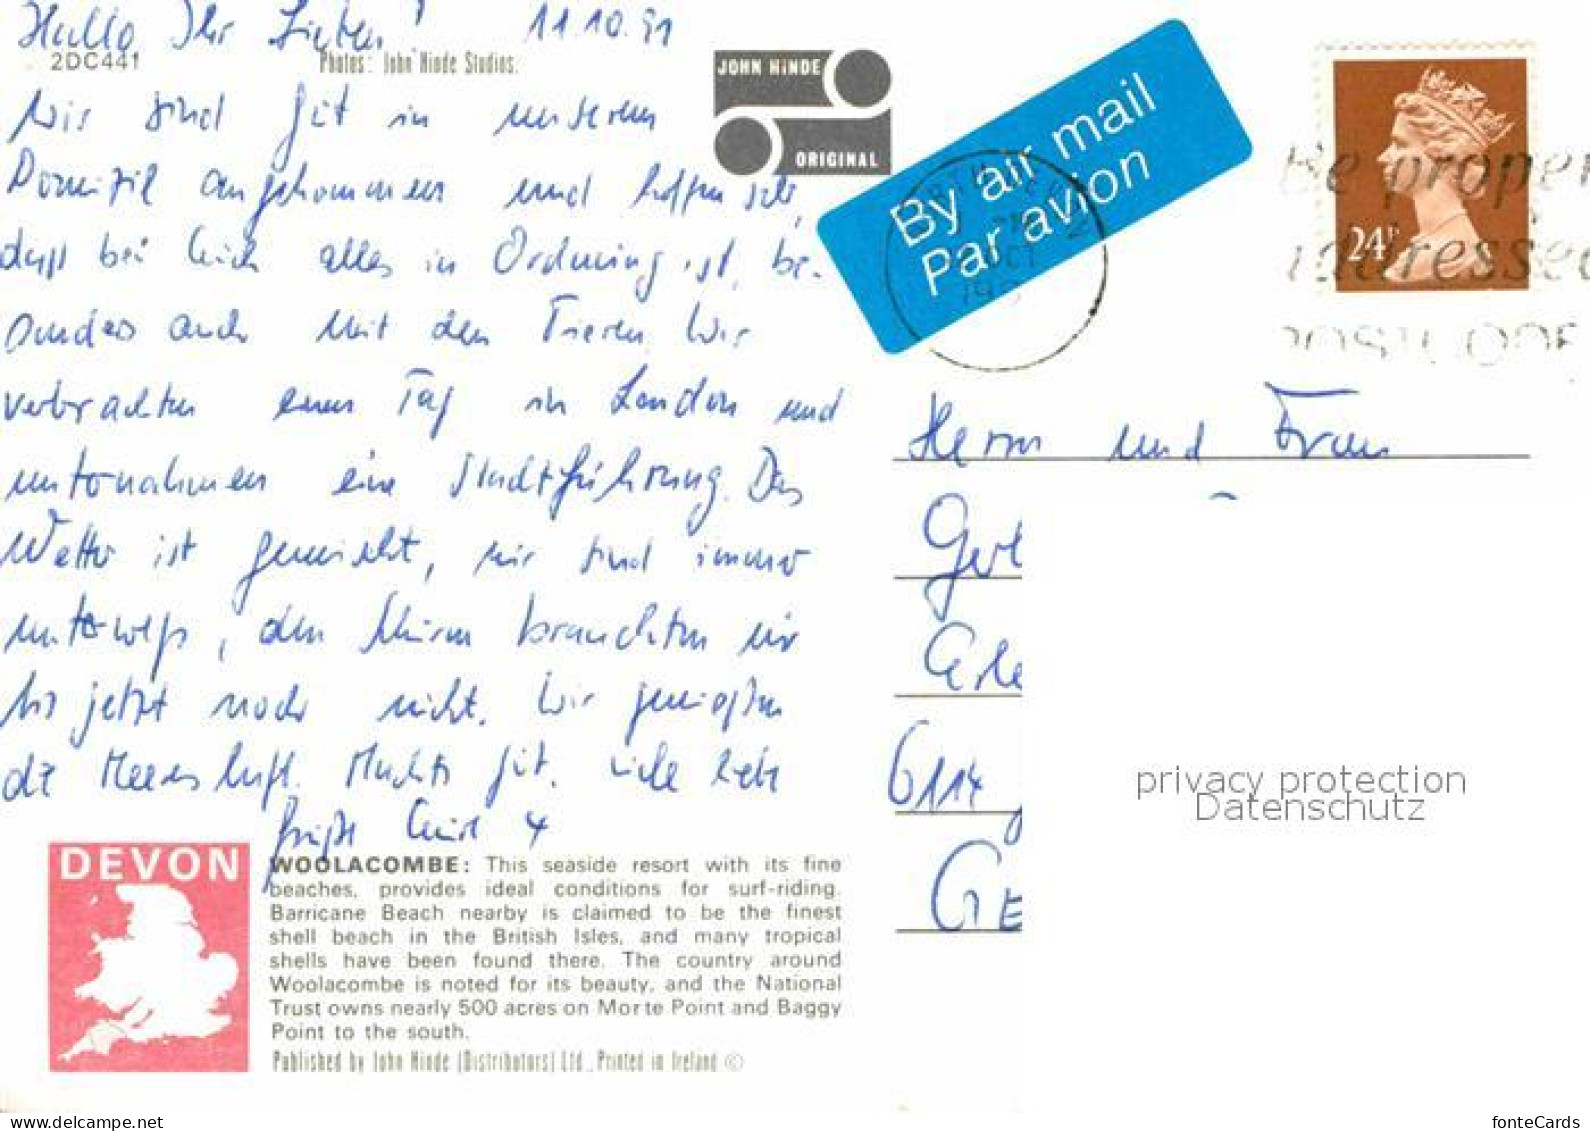 Hallo Ihr Lieben! 11.10.91
2DC441 Photos: John Hinde Studios.
JOHN HINDE
ORIGINAL
By air mail
Par avion
Be proper
addressed
POSTCODE
OCT
24P
Wir sind gut in unserem
Domizil angekommen und hoffen sehr,
daß bei Euch alles in Ordnung ist, be-
sonders auch mit den Tieren. Wir
verbrachten einen Tag in London und
unternahmen eine Stadtführung. Das
Wetter ist gemischt, wir sind immer
unterwegs, den Schirm brauchten wir
bis jetzt noch nicht. Wir genießen
die Meeresluft. Machts gut. Viele liebe
Grüße
Herrn und Frau
6114
GE
privacy protection
Datenschutz
DEVON
WOOLACOMBE: This seaside resort with its fine
beaches, provides ideal conditions for surf-riding.
Barricane Beach nearby is claimed to be the finest
shell beach in the British Isles, and many tropical
shells have been found there. The country around
Woolacombe is noted for its beauty, and the National
Trust owns nearly 500 acres on Morte Point and Baggy
Point to the south.
Published by John Hinde (Distributors) Ltd., Printed in Ireland ©
www.delcampe.net
fonteCards